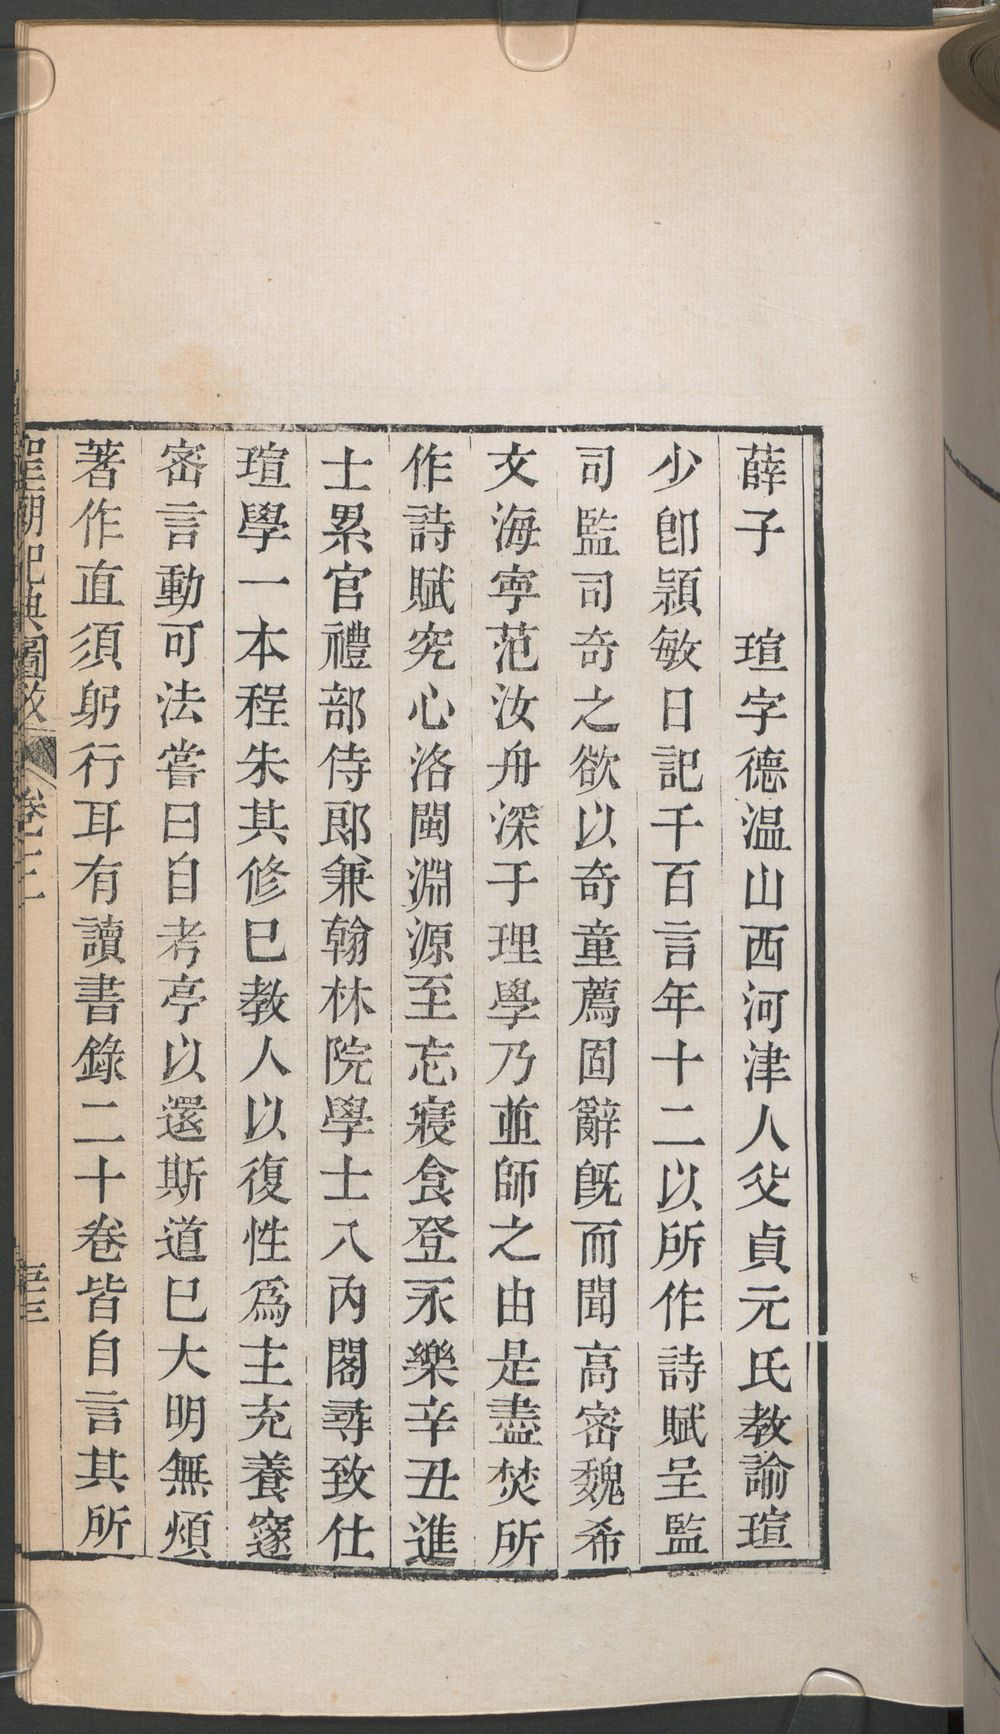 薛子　瑄字德温山西河津人父貞元氏教諭瑄
少卽穎敏日記千百言年十二以所作詩賦呈監
司監司奇之欲以奇童薦固辭旣而聞高密魏希
文海寧范汝舟深于理學乃並師之由是盡焚所
作詩賦究心洛閩淵源至忘寢食登永樂辛丑進
士累官禮部侍郎兼翰林院學士入内閣尋致仕
瑄學一本程朱其修巳教人以復性爲主充養邃
密言動可法嘗曰自考亭以還斯道巳大明無煩
著作直須躬行耳有讀書錄二十卷皆自言其所
聖朝祀典圖攷 卷三